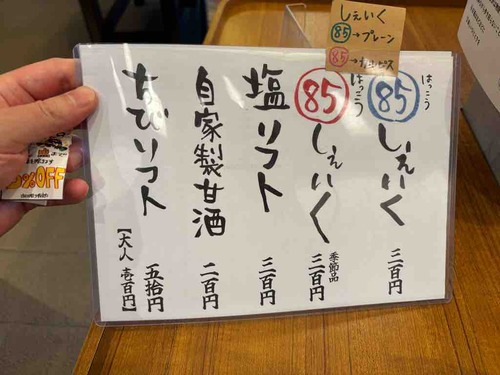 しぇいく
85→プレーン
85→
はっこう
85 しぇいく 三百円
はっこう
85 しぇいく 季節品 三百円
塩ソフト 三百円
自家製甘酒 二百円
ちびソフト 五拾円
【大人 壱百円】
%OFF